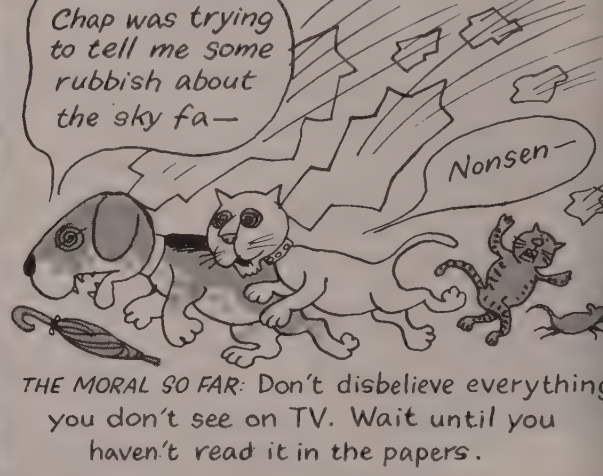 Chap was trying
to tell me some
rubbish about
the sky fa—
Nonsen—
THE MORAL SO FAR: Don't disbelieve everything
you don't see on TV. Wait until you
haven't read it in the papers.